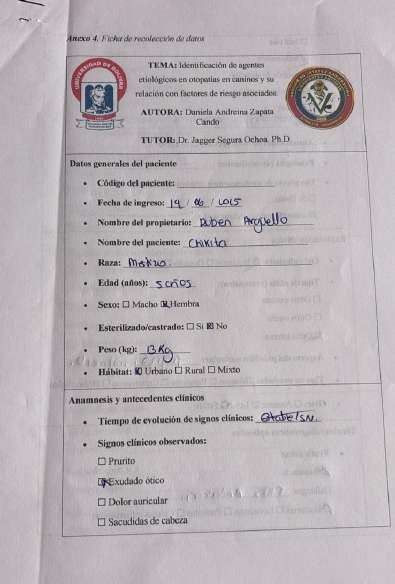 Anexo 4. Ficha de recolección de datos
TEMA: Identificación de agentes
etiológicos en otopatías en caninos y su
relación con factores de riesgo asociados
AUTORA: Daniela Andreina Zapata
Cando
TUTOR: Dr. Jagger Segura Ochoa. Ph.D
Datos generales del paciente
• Código del paciente:
• Fecha de ingreso: 19 / 06 /
• Nombre del propietario: Ruben Arguello
• Nombre del paciente: Chikita
• Raza: Mestizo
• Edad (años): 5 años
• Sexo: ☐ Macho ☒ Hembra
• Esterilizado/castrado: ☐ Si ☒ No
• Peso (kg): 13 Kg
• Hábitat: ☒ Urbano ☐ Rural ☐ Mixto
Anamnesis y antecedentes clínicos
• Tiempo de evolución de signos clínicos:
• Signos clínicos observados:
☐ Prurito
☒ Exudado ótico
☐ Dolor auricular
☐ Sacudidas de cabeza